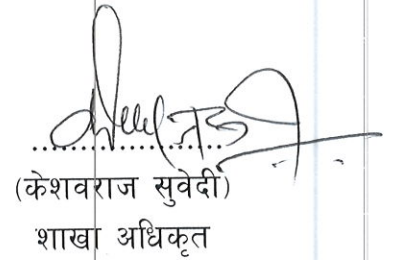 (केशवराज सुवेदी)
शाखा अधिकृत